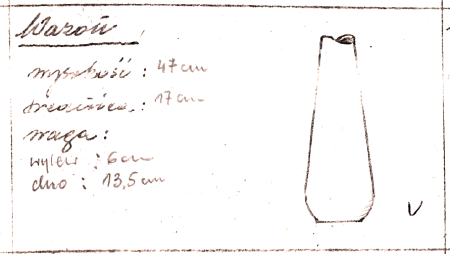 Wazon
wysokość : 47cm
średnica : 17cm
waga :
wylew : 6cm
dno : 13,5cm
V